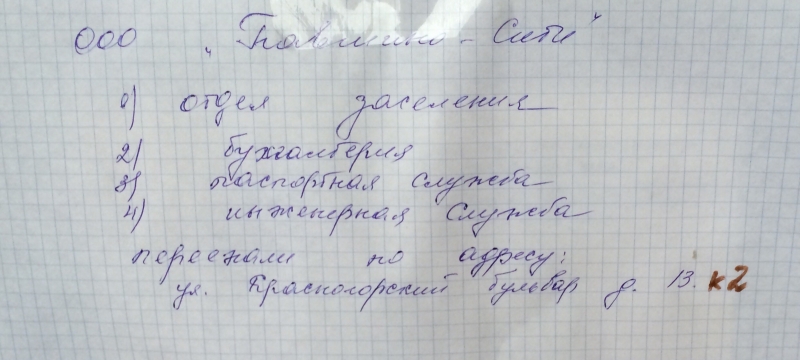 ООО "Павшино-Сити"
1) отдел заселения
2) бухгалтерия
3) паспортная служба
4) инженерная служба
переехали по адресу:
ул. Красногорский бульвар д. 13. к2